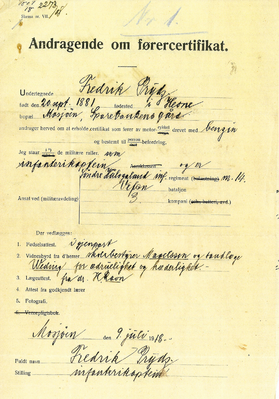 Andragende om førercertifikat.
Undertegnede Fredrik Prydz
født den 20 sept. 1881 fødested i Hevne
bopæl Mosjøen, Sparebankens gård
andrager herved om at erholde certifikat som fører av motor drevet med benzin
og bestemt til
Jeg staar i de militære ruller som
infanterikaptein og er
Søndre Helgeland inf. regiment nr. 14.
Vefsn bataljon
Ansat ved (militæravdeling) 3 kompani
Der vedlægges:
1. Fødselsattest. i genpart
2. Vidnesbyrd fra d'herrer skolebestyrer Magelssen og tandlæge
Wedvig for ædruelighet og hæderlighet
3. Lægeattest fra dr. H. Ravn
4. Attest fra godkjendt lærer
5. Fotografi.
6. Vernepligtsbok.
Mosjøen den 9 juli 1918.
Fuldt navn Fredrik Prydz
Stilling infanterikaptein